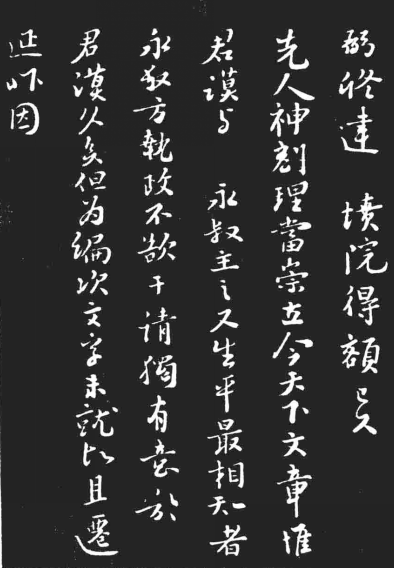 修建 墳院得額已久
先人神刻理當崇立今天下文章惟
君謨與 永叔主之又生平最相知者
永叔方執政不欲干請獨有意於
君謨久矣但為編次文字未就比且遷
延 因